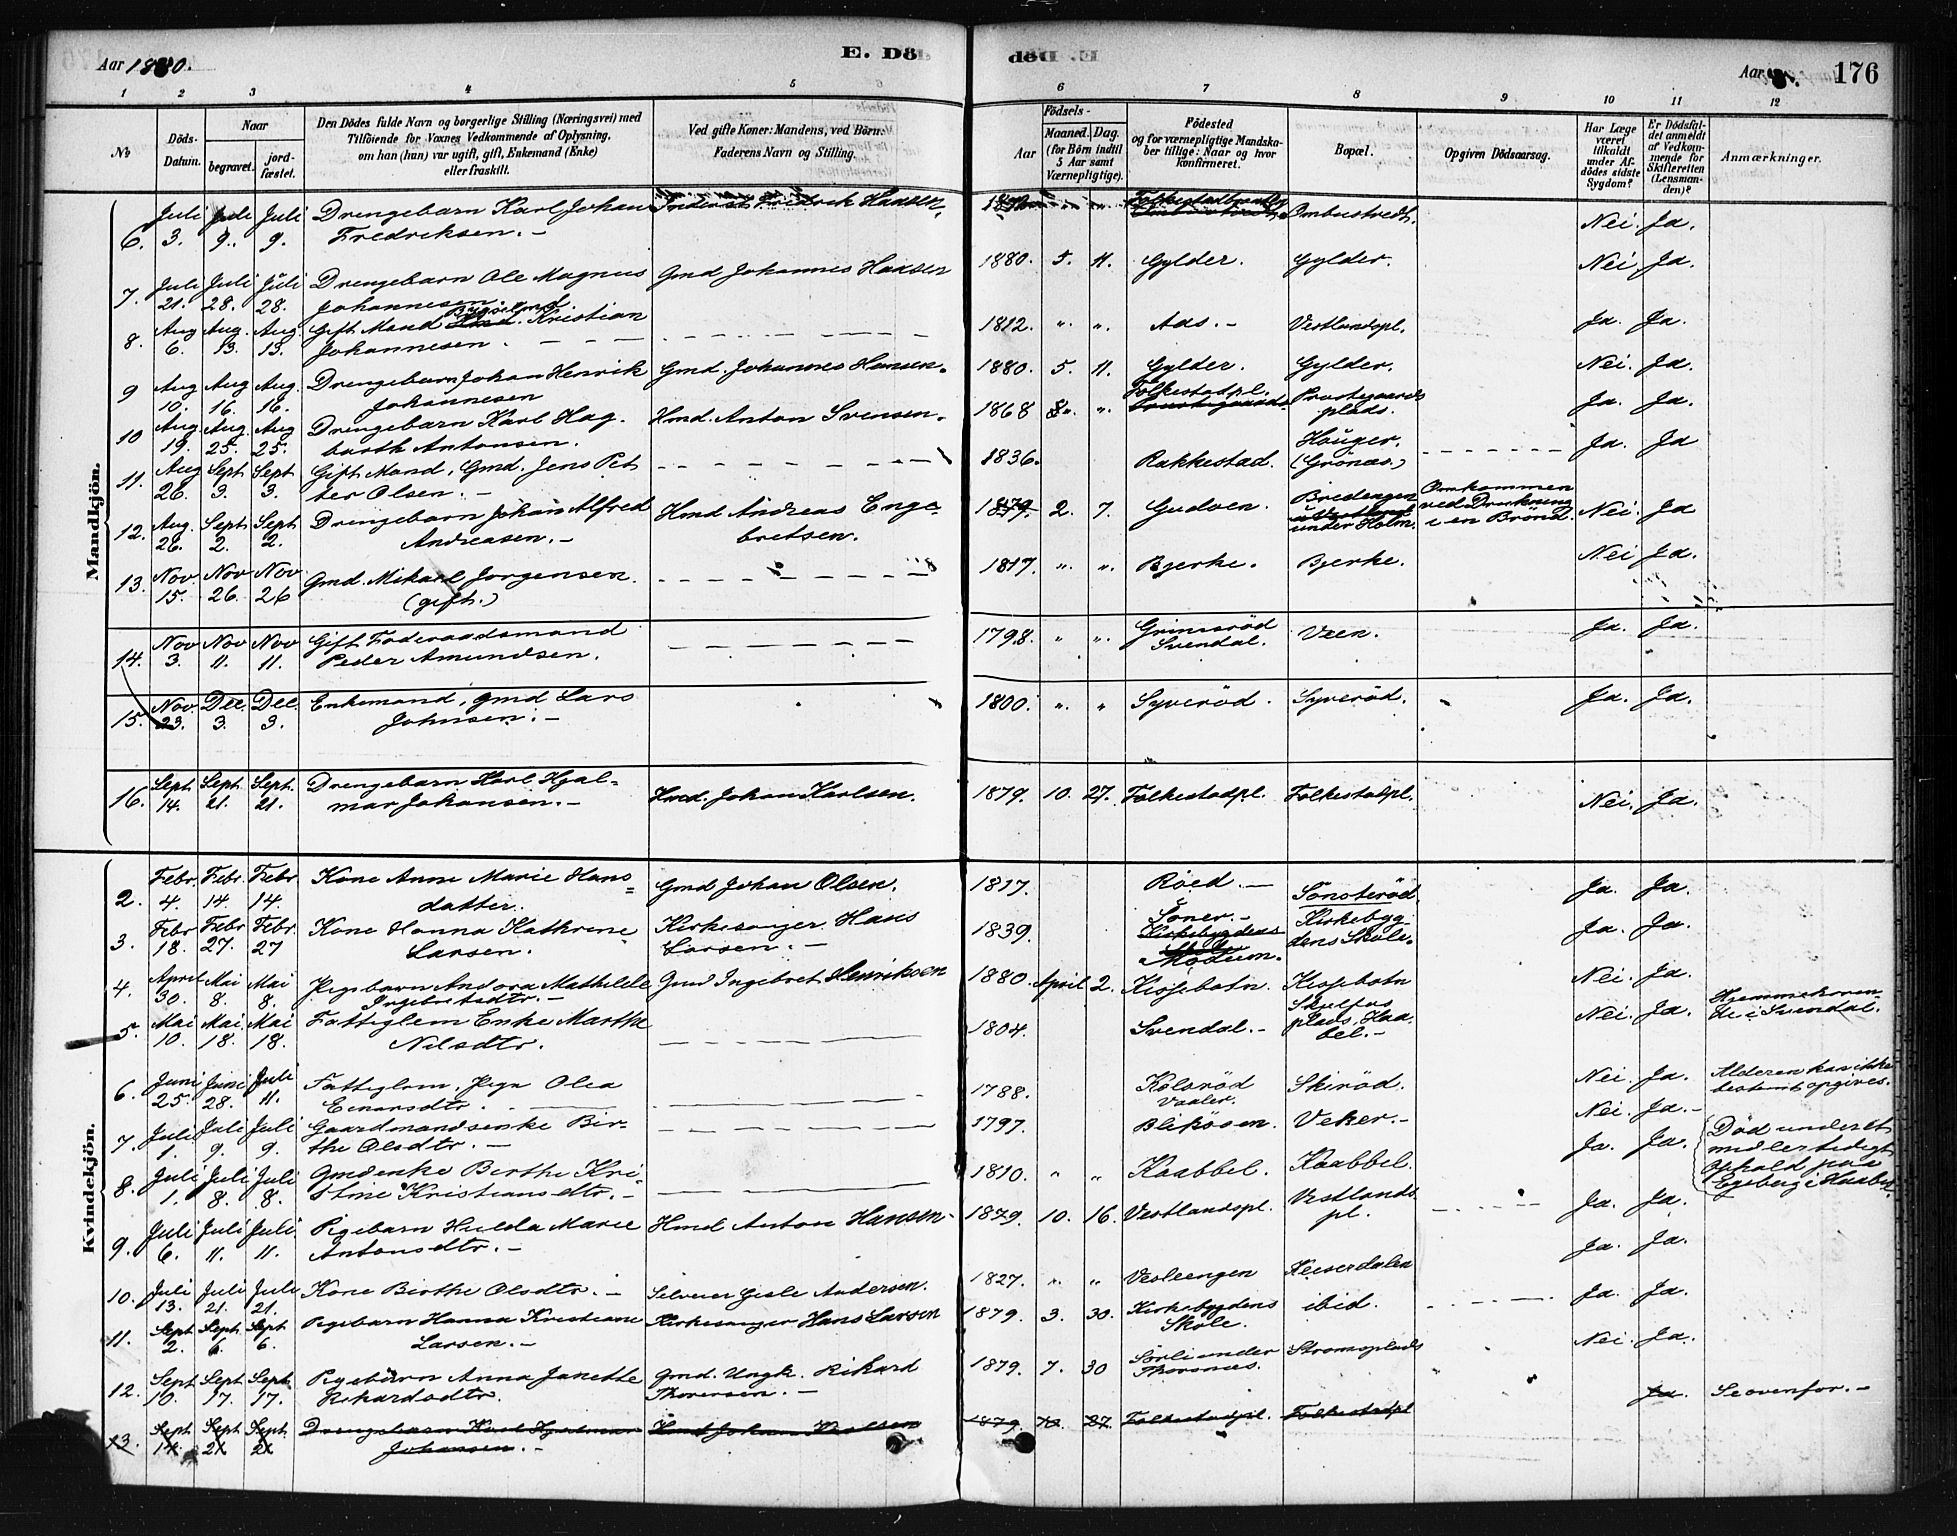 Aar 1880.
E. Dö
E. Död
Aar
176
1 2 3 4 5 6 7 8 9 10 11 12
No
Döds-Datum.
Naar
begravet.
jordfæstet.
Den Dödes fulde Navn og borgerlige Stilling (Næringsvei) med
Tilföiende for Voxnes Vedkommende af Oplysning,
om han (hun) var ugift, gift, Enkemand (Enke)
eller fraskilt.
Ved gifte Koner: Mandens, ved Börn:
Faderens Navn og Stilling.
Födsels-
Aar
Maaned. Dag.
(for Börn indtil
5 Aar samt
Værnepligtige).
Födested
og for værnepligtige Mandska-
ber tillige: Naar og hvor
konfirmeret.
Bopæl.
Opgiven Dödsaarsag.
Har Læge
været
tilkaldt
under Af-
dödes sidste
Sygdom?
Er Dödsfal-
det anmeldt
af Vedkom-
mende for
Skifteretten
(Lensman-
den)?
Anmærkninger.
Mandkjön.
6. Juli 3. Juli 9. Juli 9. Drengebarn Karl Johan Fredrik Hansen. Ombustvedt. Nei. Ja.
Fredriksen. –
7. Juli 21. Juli 28. Juli 28. Drengebarn Ole Magnus Gmd Johannes Hansen 1880. 5. 11. Gylder. Gylder. Nei. Ja.
Johannesen.
8. Aug 6. Aug. 13. Aug 13. Gift Mand Kristian 1812. " " Aas. – Vestlandspl. Ja. Ja.
Johannesen.
9 Aug 10. Aug 16. Aug. 16. Drengebarn Johan Henrik Gmd. Johannes Hansen. 1880. 5. 11. Gylder. Gylder. Nei. Ja.
Johannesen
10 Aug. 19. Aug. 25. Aug 25. Drengebarn Karl Hag- Hmd. Anton Svensen. 1868 " Folkestadpl. Prestegaards Ja. Ja.
barth Antonsen. plads.
11. Aug 26. Sept 3. Sept 3. Gift Mand, Gmd. Jens Pet 1836. Rakkestad. Hauger. Ja. Ja
ter Olsen. – (Grönæs.)
12. Aug. 26. Sept 2. Sept 2. Drengebarn Johan Alfred Hmd Andreas Enge- 1879. 2. 7. Gudoen. Bredengen Omkommen Nei. Ja
Andreasen. – bretsen. under Holm. ved Drukning
i en Brönd.
13. Nov 15. Nov 26. Nov 26 Gmd. Mikael Jorgensen. 1817. " " Bjerke. Bjerke. Nei Ja.
(gift.)
14. Nov 3. Nov 11. Nov 11. Gift Föderaadsmand 1798. " " Grimsröd Veen. Ja. Ja.
Peder Amundsen. Svendal.
15. Nov. 23. Dec. 3. Dec. 3. Enkemand, Gmd Lars 1800. " " Syveröd. Syveröd. Ja. Ja.
Johnsen. –
16. Sept 14. Sept 21. Sept. 21. Drengebarn Karl Hjal- Hmd. Johan Karlsen. 1879. 10. 27. Folkestadpl. Folkestadpl. Nei. Ja.
mar Johansen. –
Kvindekjön.
2. Febr. 4. Febr. 14. Febr 14. Kone Anne Marie Hans- Gmd Johan Olsen. 1817. Röed. – Sonsteröd Ja. Ja.
datter.
3. Febr 18. Febr 27. Febr. 27 Kone Hanna Kathrine Kirkesanger Hans 1839. Soner. – Kirkebyg- Ja. Ja.
Larsen. Larsen. – Modum. dens Skole.
4. April 30. Mai 8. Mai 8. Pigebarn Andora Mathilde Gmd Ingebret Henriksen 1880. April 2. Kjossebotn. Kjossebotn Nei. Ja.
Ingebretsdtr. –
5. Mai 10. Mai 18. Mai 18. Fattiglem Enke Marthe 1804. Svendal. – plads, Kaa- Nei. Ja. Hjemmehören-
Nilsdtr. bel. – de i Svendal.
6. Juni 25. Juni 28. Juli 11. Fattiglem, Pige Olea 1788. Kolsröd Skiröd. Nei. Ja. Alderen kan ikke
Einarsdtr. Vaaler. bestemt opgives.
7. Juli 1. Juli 9. Juli 9. Gaardmandsenke Bir- 1797. Bliksoen. Veker. – Nei. Ja. –
the Olsdtr. –
8. Juli 1. Juli 8. Juli 8. Gmdenke Birthe Kri- 1810. " " Kaabbel. Kaabbel. Ja. Ja. Död under et
stine Kristiansdtr. – midlertidigt
Ophold paa
Egeberg i Kaabbel.
9. Juli 6. Juli 11. Juli 11. Pigebarn Hulda Marie Hmd Anton Hansen 1879. 10. 16. Vestlandspl. Vestlands Ja. Ja.
Antonsdtr. – pl.
10. Juli 13. Juli 21. Juli 21. Kone Birthe Olsdtr. – Selveier Gisle Andersen. 1827. " " Vesleengen Keiserdalen Ja. Ja.
11. Sept 2. Sept. 6. Sept 6. Pigebarn Hanna Kristiane Kirkesanger Hans Larsen 1879. 3. 30. Kirkebygdens ibid. Ja. Ja.
Larsen. – Skole.
12. Sept 10. Sept 17. Sept. 17. Pigebarn Anna Janette Gmd. Ungk. Rikard 1879. 7. 30 Sörli under Stromsplads Nei. Ja.
Rikardsdtr. Thoresen. – Thorsnæs.
13. Sept 14. Sept 21 Sept. 21 Drengebarn Karl Hjalmar Hmd Johan Karlsen 1879 10. 27. Folkestadpl. Folkestadpl Ja. Se ovenfor. –
Johansen. –